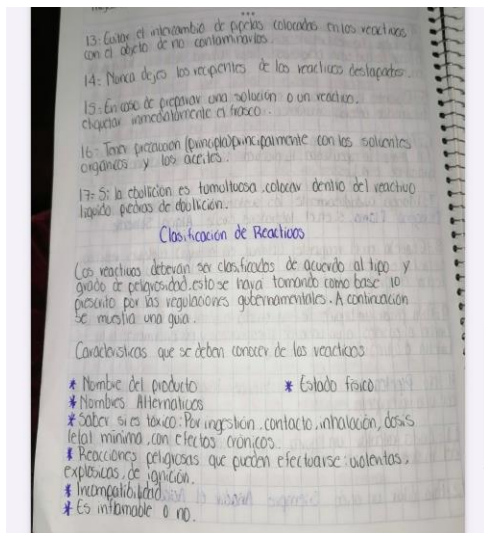 13: Evitar el intercambio de pipetas colocados en los reactivos
con el objeto de no contaminarlos.
14: Nunca dejes los recipientes de los reactivos destapados.
15: En caso de preparar una solución o un reactivo.
etiquetar inmediatamente el frasco.
16- Tener precaución (principla) principalmente con los solventes
orgánicos y los aceites.
17= Si la ebollición es tomoltuosa, colocar dentro del reactivo
líquido piedras de ebollición.
Clasificación de Reactivos
Los reactivos deberán ser clasificados de acuerdo al tipo y
grado de peligrosidad, esto se hará tomando como base lo
prescrito por las regulaciones gubernamentales. A continuación
se muestra una guía.
Características que se deben conocer de los reactivos
* Nombre del producto * Estado físico
* Nombres Alternativos
* Saber si es tóxico: Por ingestión, contacto, inhalación, dosis
letal mínima, con efectos crónicos.
* Reacciones peligrosas que pueden efectuarse: violentas,
explosivas, de ignición.
* Incompatibilidad
* Es inflamable o no.